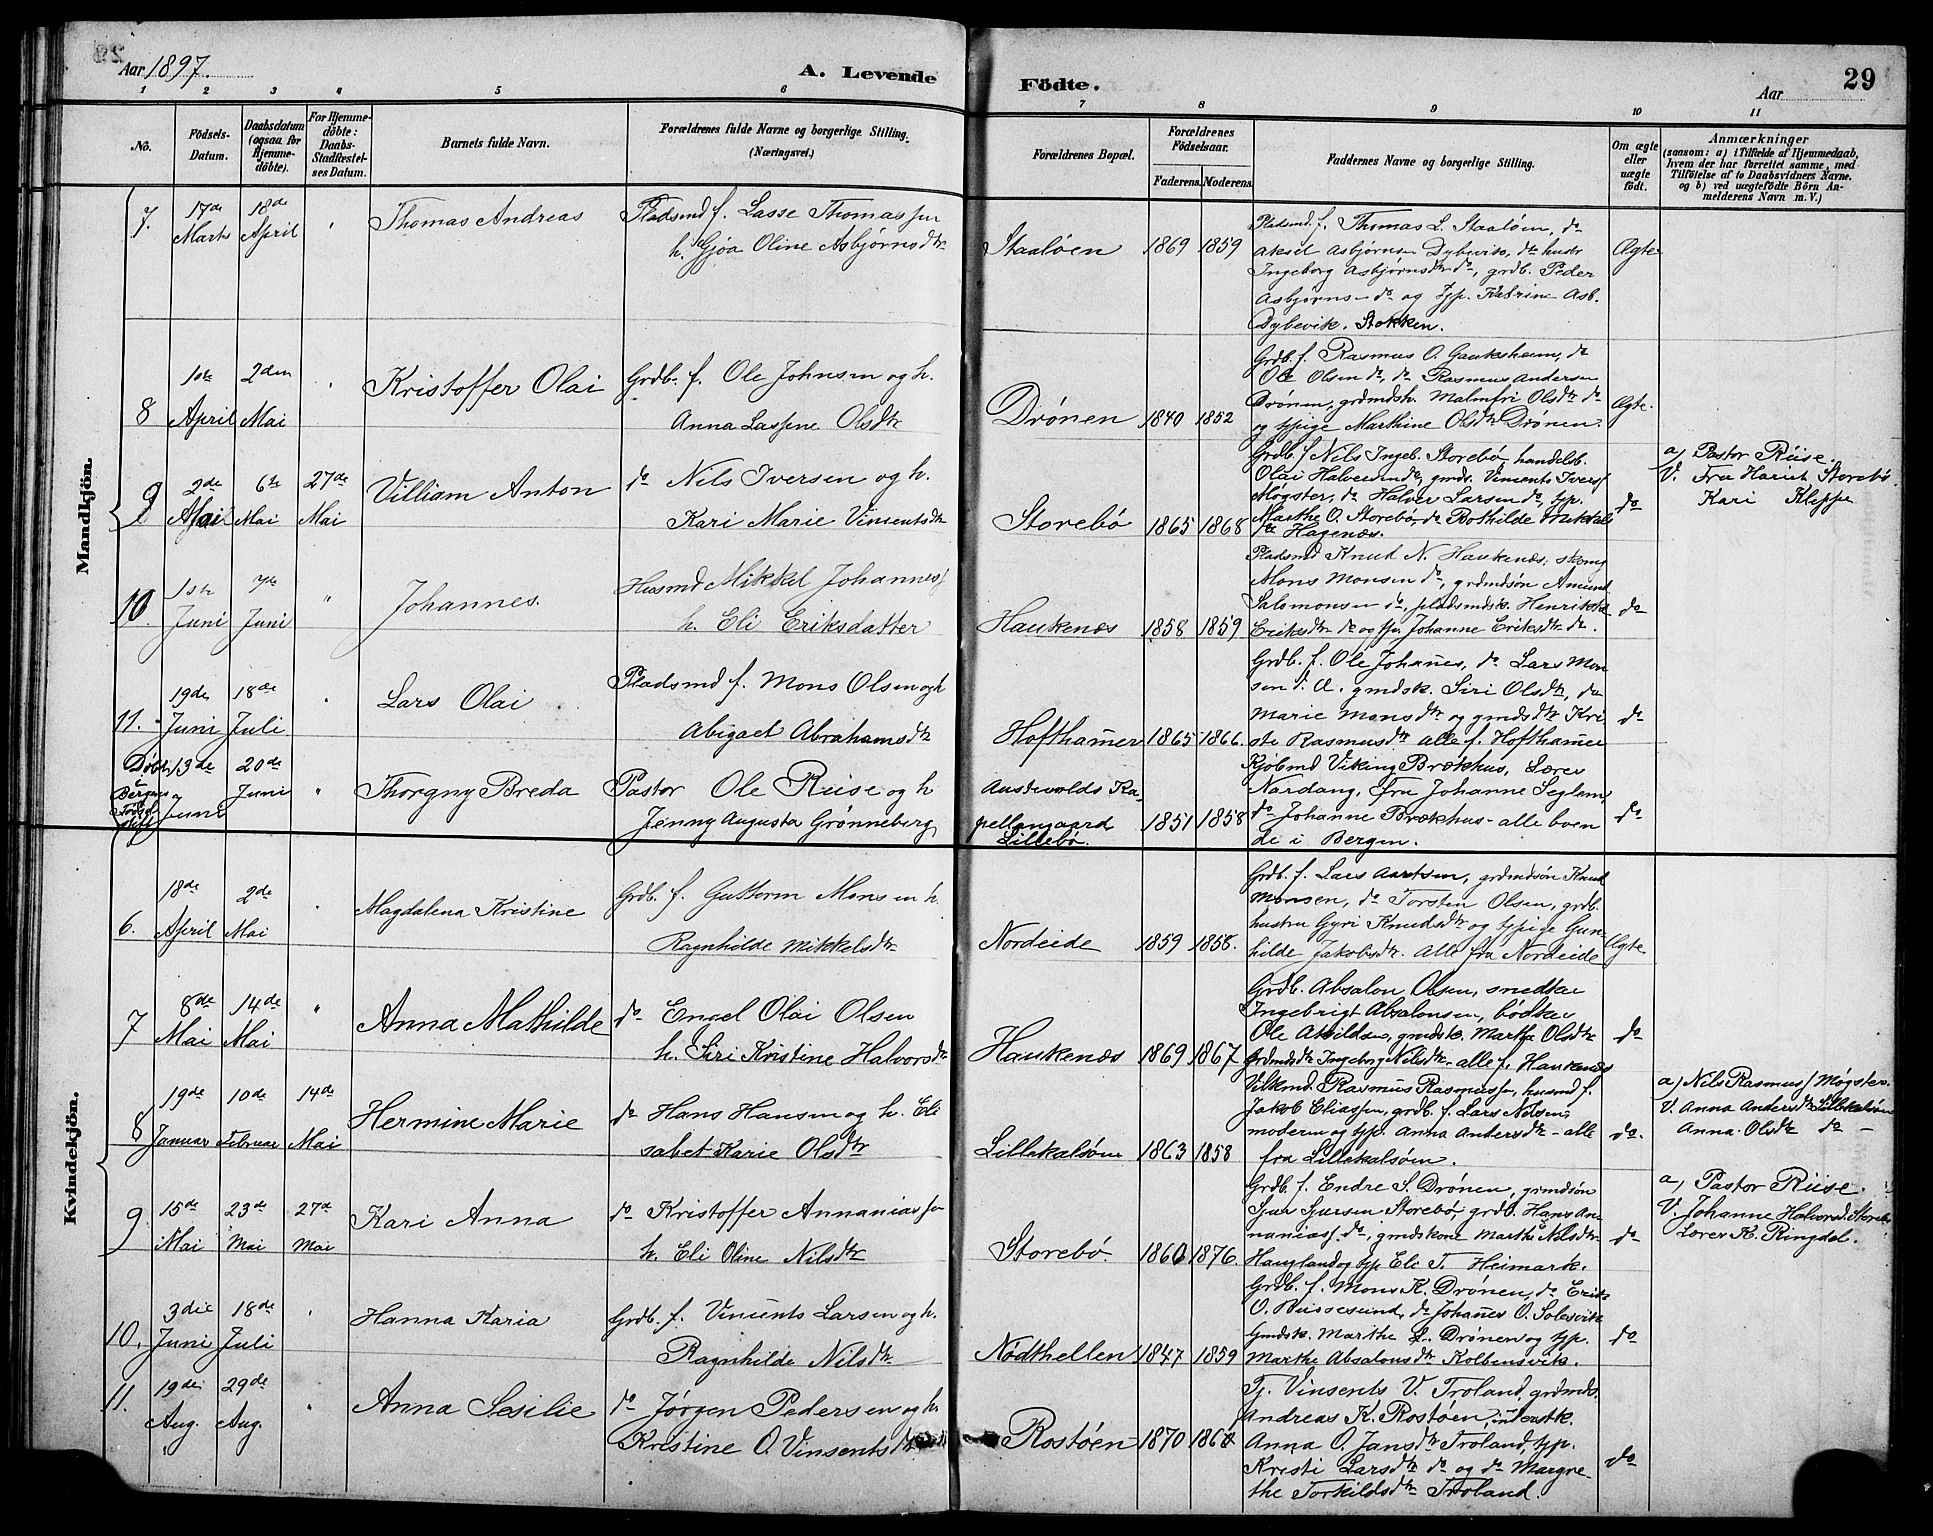 Aar 1897.
A. Levende
Födte.
Aar
29
1 2 3 4 5 6 7 8 9 10 11
No.
Födsels-Datum.
Daabsdatum (ogsaa for Hjemmedöbte).
For Hjemmedöbte: Daabs-Stadfæstelses Datum.
Barnets fulde Navn.
Forældrenes fulde Navne og borgerlige Stilling. (Næringsvei.)
Forældrenes Bopæl.
Forældrenes Födselsaar.
Faderens. Moderens.
Faddernes Navne og borgerlige Stilling.
Om ægte eller uægte födt.
Anmærkninger
(saasom: a) i Tilfælde af Hjemmedaab, hvem der har forrettet samme, med Tilföielse af to Daabsvidners Navne. og b) ved uægtefödte Börn Anmelderens Navn m. V.)
Mandkjön.
7. 17de Marts 18de April " Thomas Andreas
Pladsmd f. Lasse Thomassen
h. Gjøa Oline Asbjørnsdtr
Staaløen 1869 1859
Pladsmd. f. Thomas L. Staaløen, do
Aksel Asbjørnsen Dybevik, do hustr
Ingeborg Asbjørnsdtr do, grdb. Peder
Asbjørnsen do og typ. Katrine Asb.
Dybevik. Stokken.
Ægte
8 1ste April 2den Mai " Kristoffer Olai
Grdb. f. Ole Johnsen og h.
Anna Lassine Olsdtr
Drónen 1840 1852
Grdb. f. Rasmus O. Gauksheim, do
Ole Olsen do, do Rasmus Andersen
Drónen, grdmdsh. Malmfri Olsdtr do
og typige Marthine Olsdtr Drónen.
Ægte.
9 2de Mai 6te Mai 27de Mai Villiam Anton
do Nils Iversen og h.
Kari Marie Vinsentsdtr
Storebø 1865 1868
Grdb. f. Nils Ingeb. Storebø, handelsb.
Olai Halversen do, gmds. Vinsents Ivers
Møgster, do Halver Larsen do, typ.
Marthe O. Storebø, do Bothilde Mikkels
dtr Hagenæs.
do
a) Pastor Riise.
V. Fru Hariet Storebø
Kari Kleppe
10. 1ste Juni 7de Juni " Johannes.
Husmd Mikkel Johannes
h. Eli Eriksdatter
Haukenæs 1858 1859
Pladsmd Knud N. Haukenæs, skomg
Mons Monsen do, grdmdsøn Amund
Salomonsen do, pladsmdsk. Henrikka
Eriksdtr do og typ. Johanne Eriksdtr do.
do
11. 19de Juni 18de Juli " Lars Olai
Pladsmd f. Mons Olsen og h
Abigael Abrahamsdtr
Hofthamer 1865 1866.
Grdb. f. Ole Johannes, do Lars Mon
sen d. Æ. gmdsk. Siri Olsdtr, do
Marie Monsdtr og gmdsdtr Kri
ste Rasmusdtr alle f. Hofthamer
do
Døbt
Bergens
Fødsels
stift
13de Juni 20de Juni " Thorgny Breda
Pastor Ole Riise og h
Jenny Augusta Grønneberg
Austevolds Ka-
pellangaard
Lillebø.
1851 1858
Kjøbmd Viking Brækhus, Lærer
Nordang, Fru Johanne Seglem,
do Johanne Brækhus – alle boen
de i Bergen.
do
Kvindekjön.
6. 18de April 2de Mai " Magdalena Kristine
Grdb. f. Guttorm Monsen h.
Ragnhilde Mikkelsdtr
Nordeide 1859 1858.
Grdb. f. Lars Aartsen, grdmdsøn Knud
Monsen, do Torsten Olsen, grdb.
hustru Gyri Knudsdtr og typige Gun
hilde Jakobsdtr. Alle fra Nordeide
Ægte
7 8de Mai 14de Mai " Anna Mathilde
do Engel Olai Olsen
h. Siri Kristine Halvorsdtr
Haukenæs 1869 1867
Grdb. Absalon Olsen, snedker
Ingebrigt Absalonsen, bødker
Ole Askildsen, gmdsk. Martha Olsdtr
Grdmdsdtr Ingeborg Nilsdtr – alle f. Haukenæs
do
8 19de Januar 10de Februar 14de Mai Hermine Marie
do Hans Hansen og h. Eli
sabet Karie Olsdtr
Lillekalsøen 1863 1858
Vilkmd. Rasmus Rasmussen, husmd f.
Jakob Eliassen, grdb. f. Lars Nilsen,
moderen og typ. Anna Andersdtr – alle
fra Lillekalsøen.
do.
a) Nils Rasmus Møgster.
V. Anna Andersdtr Lillekalsøen
Anna Olsdtr do –
9 15de Mai 23de Mai 27de Mai Kari Anna
do Kristoffer Annaniassen
h. Eli Oline Nilsdtr
Storebø 1860 1876.
Grdb. f. Endre S. Drónen, grmdsøn
Sjur Sjursen Storebø, grdb. Hans An
naniass. do, gmdskone Martha Nilsdtr
Haugland og typ Eli T. Heimark.
do
a) Pastor Riise.
V. Johanne Halvorsd. Storebø
Lærer K. Ringdal.
10. 3die Juni 18de Juli " Hanna Karia
Grdb. f. Vinsents Larsen og h.
Ragnhilde Nilsdtr
Nødthellen 1847 1859
Grdb. f. Mons K. Drónen, do Erik
O. Bussesund, do Johannes O. Solesvik
Gmdsk. Marthe L. Drónen og typ.
Marthe Absalonsdtr Kolbensvik.
do
11. 19de Aug. 29de Aug. " Anna Sesilie
do Jørgen Pedersen og h.
Kristine O. Vinsentsdtr
Rostøen 1870
Tj. Vinsents V. Troland, grdmds.
Andreas K. Rostøen,
Anna O. Jansdtr Troland, typ.
Kristi Larsdtr do og do Margre-
the Torkildsdtr Troland.
do